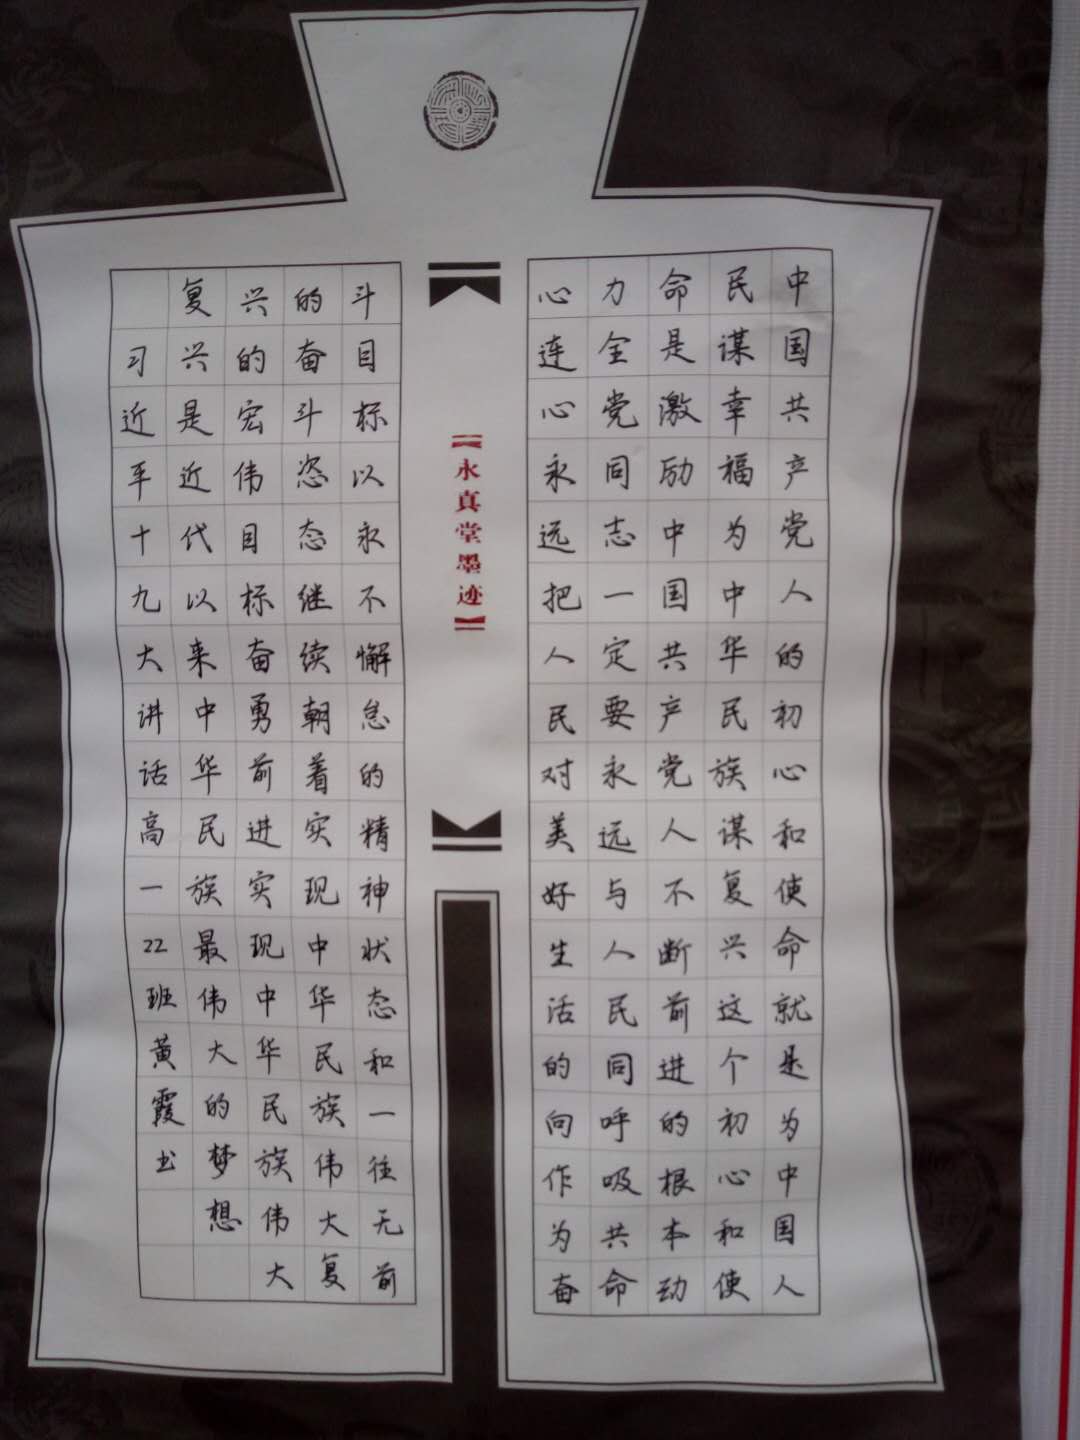 中国共产党人的初心和使命就是为中国人
民谋幸福为中华民族谋复兴这个初心和使
命是激励中国共产党人不断前进的根本动
力全党同志一定要永远与人民同呼吸共命
心连心永远把人民对美好生活的向作为奋
【永真堂墨迹】
斗目标以永不懈怠的精神状态和一往无前
的奋斗恣态继续朝着实现中华民族伟大复
兴的宏伟目标奋勇前进实现中华民族伟大
复兴是近代以来中华民族最伟大的梦想
习近平十九大讲话高一22班黄霞书